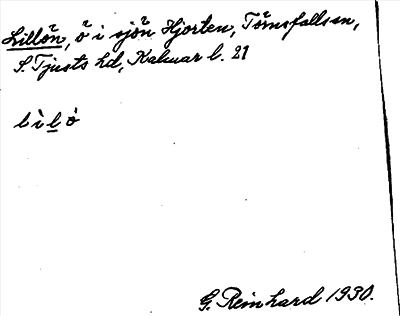 Lillön, ö i sjön Hjorten, Törnsfallssn,
S. Tjusts hd, Kalmar l. 21
lìlò
G. Reinhard 1930.